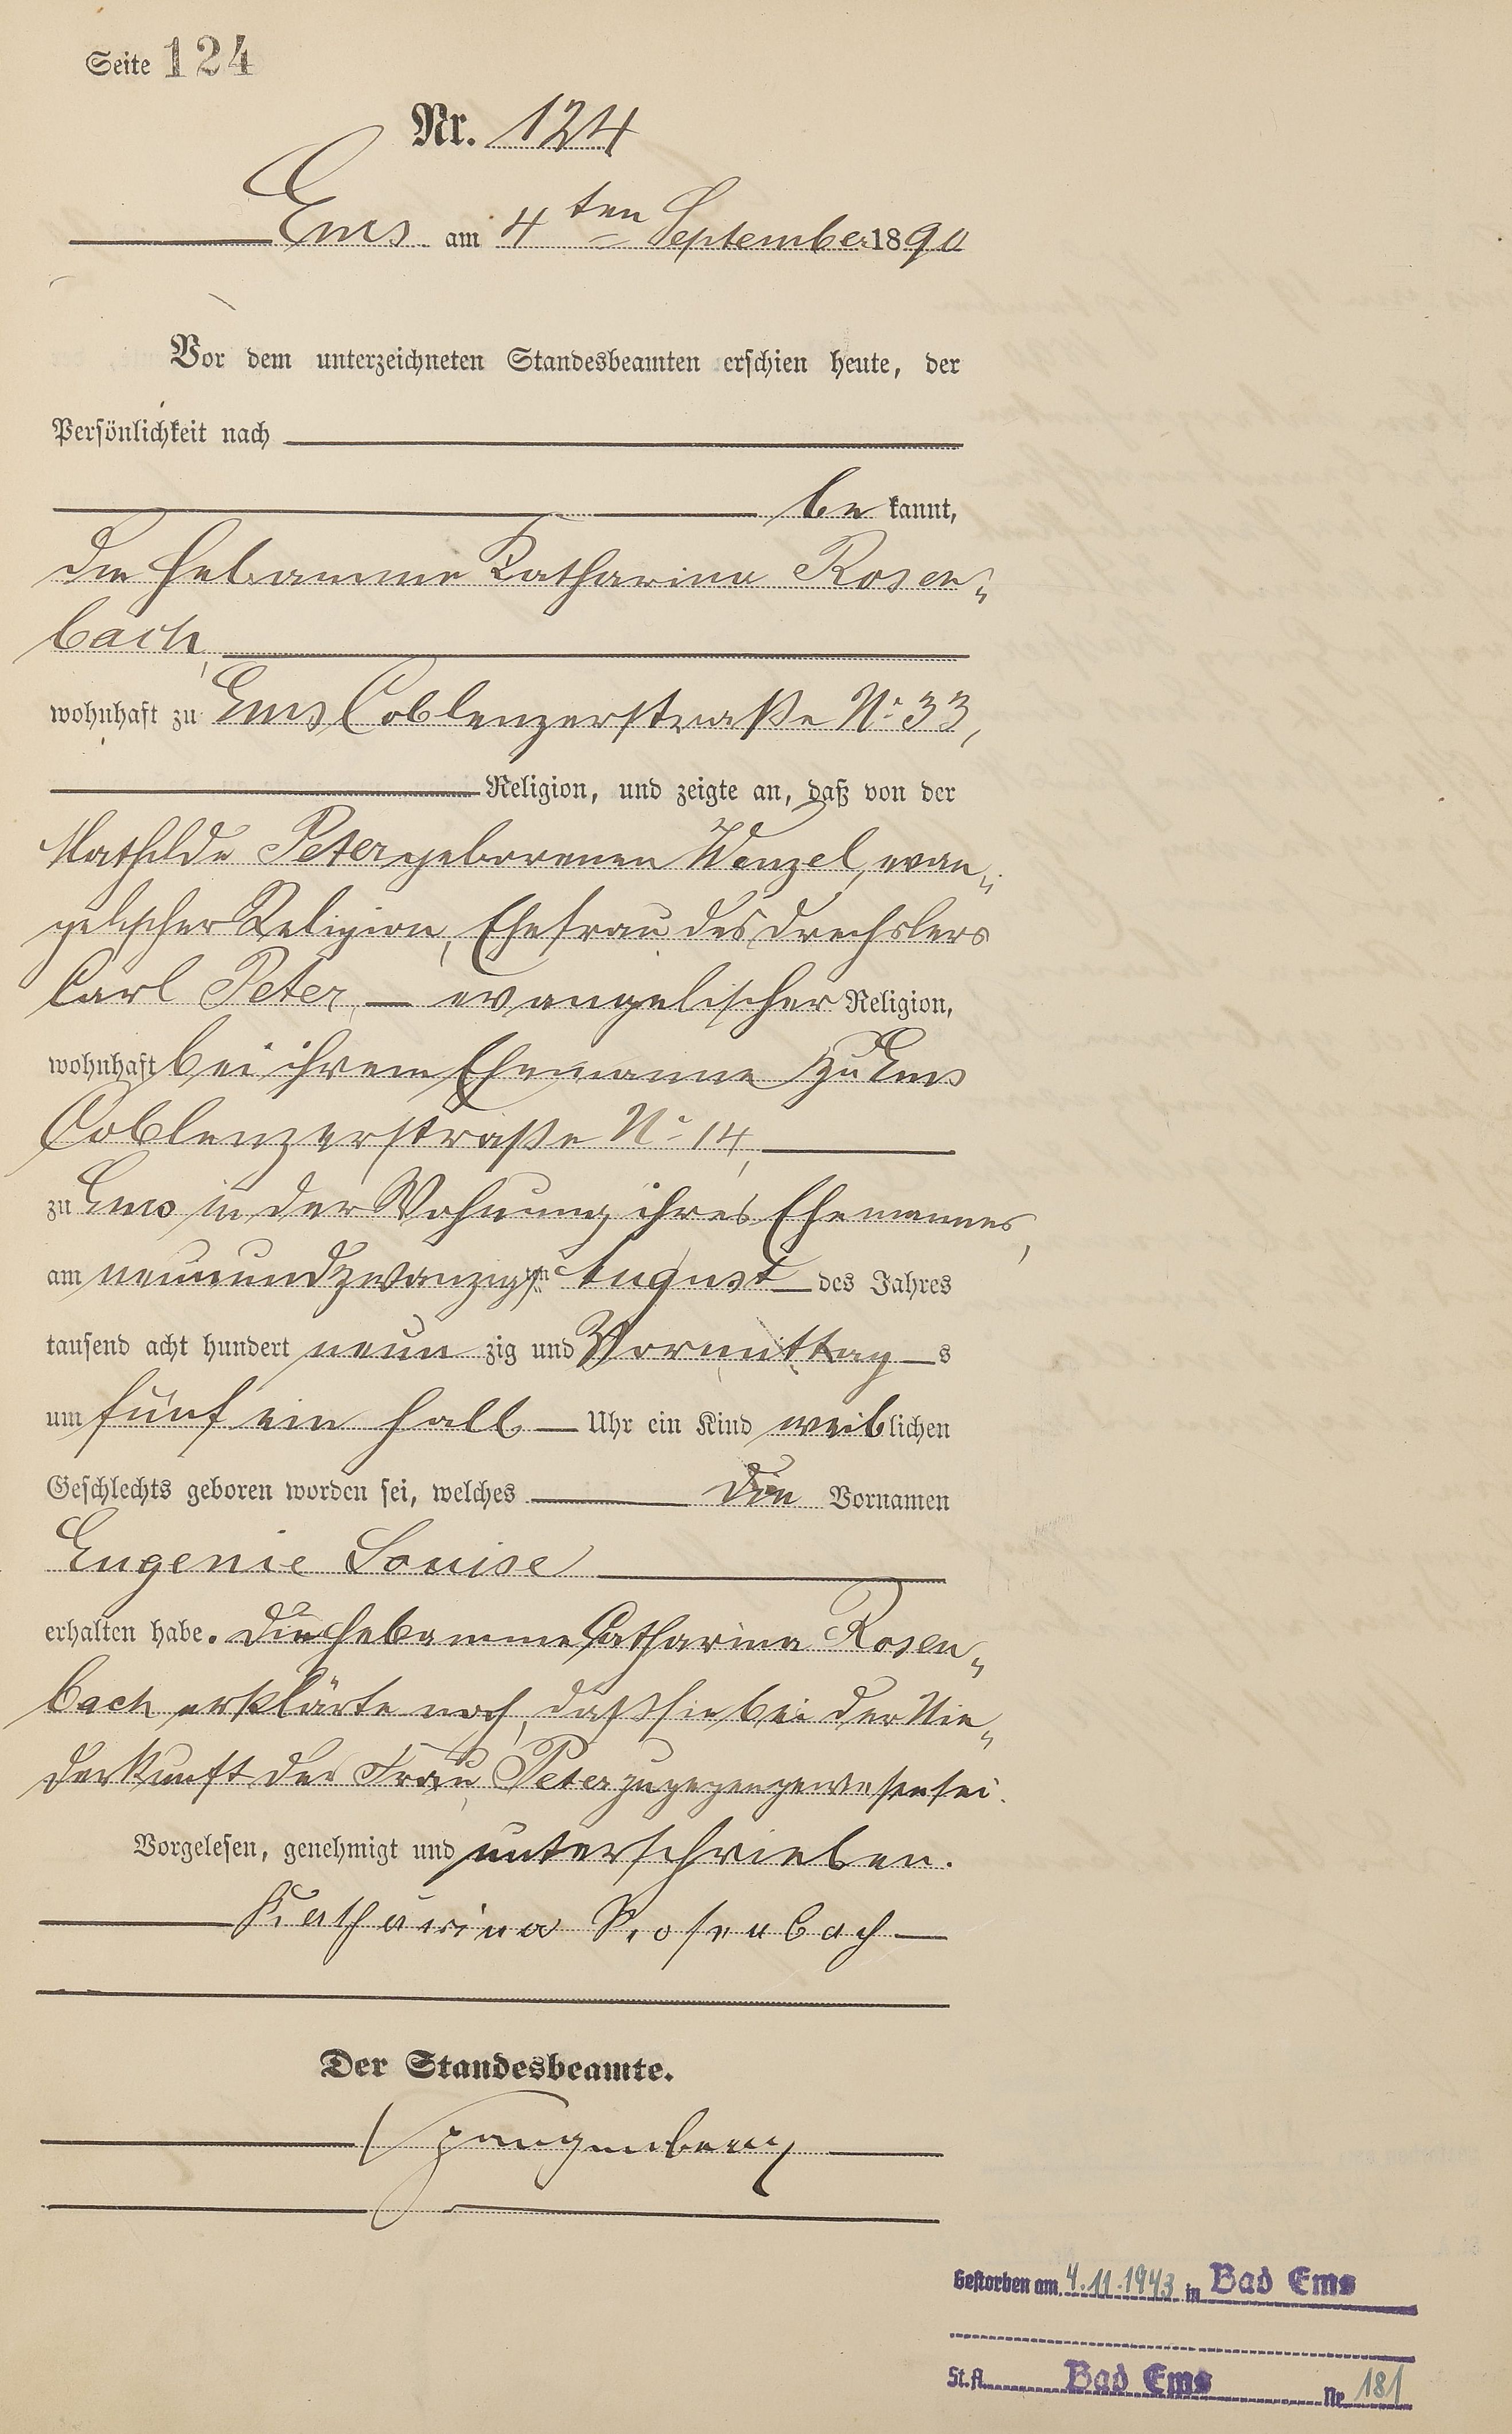 Seite 124
Nr. 124
Ems am 4ten September 1890
Vor dem unterzeichneten Standesbeamten erschien heute, der
Persönlichkeit nach
be kannt,
die Hebamme Katharina Rosen-
bach,
wohnhaft zu Ems Coblenzerstraße No 33,
Religion, und zeigte an, daß von der
Mathilde Peter geborenen Wenzel, evan-
gelischer Religion, Ehefrau des Drechslers
Carl Peter, evangelischer Religion,
wohnhaft bei ihrem Ehemanne zu Ems
Coblenzerstraße No 14,
zu Ems in der Wohnung ihres Ehemannes,
am neunundzwanzigsten August des Jahres
tausend acht hundert neun zig und Vormittag s
um fünf ein halb Uhr ein Kind weiblichen
Geschlechts geboren worden sei, welches die Vornamen
Eugenie Louise
erhalten habe. Die Hebamme Catharina Rosen-
bach erklärte noch, daß sie bei der Nie-
derkunft der Frau Peter zugegen gewesen sei.
Vorgelesen, genehmigt und unterschrieben.
Katharina Rosenbach
Der Standesbeamte.
Spangenberg
Gestorben am 4.11.1943 in Bad Ems
St.A. Bad Ems Nr. 181